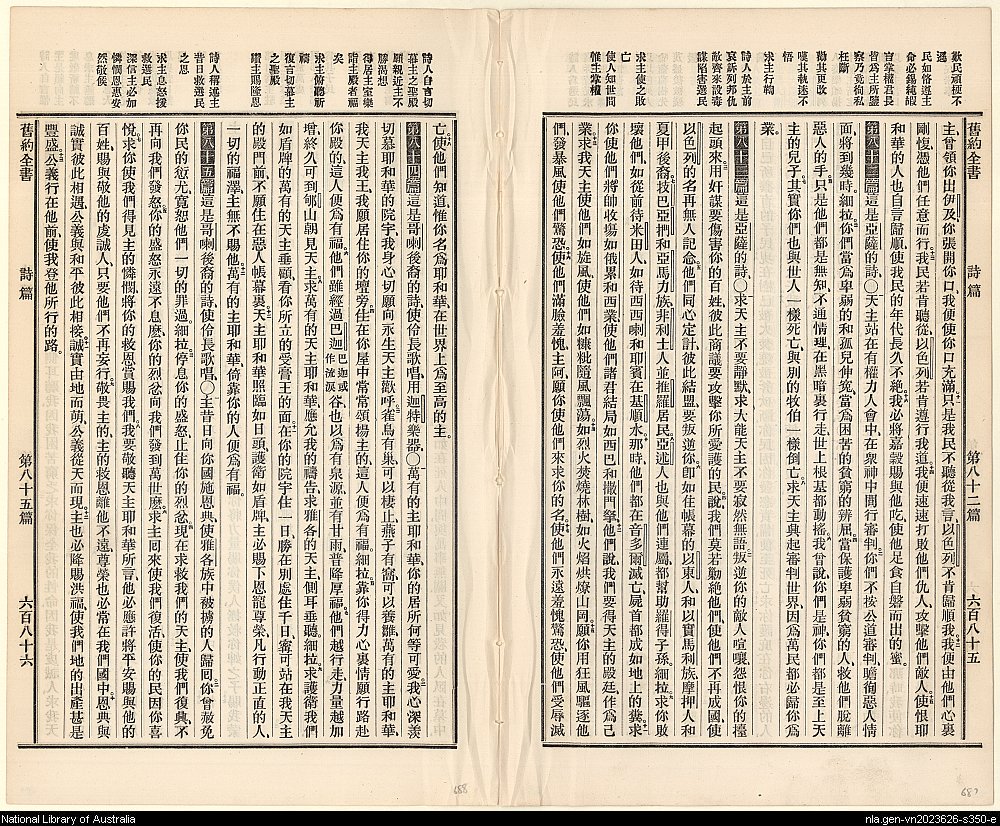 歎民頑梗不
遜
民如恪遵主
命必錫純嘏
官掌權君長
皆爲主所鑒
察乃竟徇私
枉斷
勸其更改
嘆其執迷不
悟
求主行鞫
詩人於主前
哀訴列邦仇
敵齊來設毒
謀陷害選民
求主使之敗
亡
使人知世間
惟主掌權
舊約全書
詩篇
第八十二篇
六百八十五
主、曾領你出伊及、你張開你口、我便使你口充滿、只是我民不聽從我言、以色列不肯歸順我、我便由他們心裏
剛愎、憑他們任意而行、我民若肯聽從、以色列若肯遵行我道、我便速速打敗他們仇人、攻擊他們敵人、使恨耶
和華的人也自言歸順、使我民的年代長久不絶、我必將嘉穀賜與他吃、使他足食自磐而出的蜜。
第八十二篇這是亞薩的詩、〇天主站在有權力人會中、在衆神中間行審判、你們不按公道審判、瞻徇惡人情
面、將到幾時、細拉、你們當爲卑弱的和孤兒伸寃、當爲困苦的貧窮的辨屈、當保護卑弱貧窮的人、救他們脫離
惡人的手、只是他們都是無知、不通情理、在黑暗裏行走、世上根基都動搖、我曾說你們是神、你們都是至上天
主的兒子、其實你們也與世人一樣死亡、與別的牧伯一樣倒亡、求天主興起審判世界、因爲萬民都必歸你爲
業。
第八十三篇這是亞薩的詩、〇求天主不要靜默、求大能天主不要寂然無語、叛逆你的敵人喧嚷、怨恨你的擡
起頭來、用奸謀要傷害你的百姓、彼此商議要攻擊你所愛護的民、說、我們莫若勦絶他們、使他們不再成國、使
以色列的名再無人記念、他們同心定計、彼此結盟、要叛逆你、卽如住帳幕的以東人、和以實馬利族、摩押人、和
夏甲後裔、技巴、亞捫、和亞馬力族、非利士人、並推羅居民、亞述人也與他們連屬、都幫助羅得子孫、細拉、求你敗
壞他們、如從前待米田人、如待西西喇和耶賓在基順水那時、他們都在音多爾滅亡、屍首都成如地上的糞、求
你使他們將帥收塲如俄累和西業、使他們諸君結局如西巴和撒門拏、他們曾說、我們要得天主的殿廷作爲己
業、求我天主使他們如旋風、使他們如糠粃隨風飄蕩、如烈火焚燒林樹、如火焰烘燎山岡、願你用狂風驅逐他
們、發暴風使他們驚恐、使他們滿臉羞愧、主阿、願你使他們來求你的名、使他們永遠羞愧驚恐、使他們受辱滅
詩人自言切
慕主之聖殿
願親近主不
勝渴想
得居主室樂
詣主殿者福
矣
求主俯聽祈
禱
復言切慕主
之聖殿
讚主賜隆恩
詩人稱述主
昔日救選民
之恩
求主息怒援
救選民
深信主必加
憐憫恩惠安
然敬俟
亡、使他們知道惟你名爲耶和華、在世界上爲至高的主。
第八十四篇這是哥喇後裔的詩、使伶長歌唱、用迦特樂器、〇萬有的主耶和華、你的居所何等可愛、我心深羨
切慕耶和華的院宇、我身心切願向永生天主歡呼、雀鳥有巢可以棲止、燕子有窩可以養雛、萬有的主耶和華、
我天主我王、我願居住你的壇旁、住在你屋中常常頌揚主的、這人便爲有福、細拉、靠你得力、心裏情願行路赴
你殿的、這人便爲有福、他們雖經過巴迦巴迦或作流淚谷、也以爲有泉源、並有甘雨普降厚福、他們越行走力量越加
增、終久可到郇山朝見天主、求萬有的天主耶和華應允我的禱告、求雅各的天主側耳垂聽、細拉、求護衛我們
如盾牌的萬有的天主垂顧、看你所立的受膏王的面、在你的院宇住一日勝在別處住千日、寗可站在我天主
的殿門前、不願住在惡人帳幕裏、天主耶和華照臨如日頭、護衛如盾牌、主必賜下恩寵尊榮、凡行動正直的人、
一切的福澤主無不賜他、萬有的主耶和華、倚靠你的人便爲有福。
第八十五篇這是哥喇後裔的詩、使伶長歌唱、〇主昔日向你國施恩典、使雅各族中被擄的人歸回、你曾赦免
你民的愆尤、寬恕他們一切的罪過、細拉、停息你的盛怒、止住你的烈忿、現在求救我們的天主、使我們復興、不
再向我們發怒、你的盛怒永遠不息麽、你的烈忿向我們發到萬世麽、求主回來使我們復活、使你的民因你喜
悅、求你使我們得見主的憐憫、將你的救恩賞賜我們、我要敬聽天主耶和華所言、他必應許將平安賜與他的
百姓、賜與敬他的虔誠人、只要他們不再妄行、敬畏主的、主的救恩離他不遠、尊榮也必常在我們國中、恩典與
誠實彼此相遇、公義與和平彼此相接、誠實由地而萌、公義從天而現、主也必降賜洪福、使我們地的出產甚是
豐盛、公義行在他前、使我登他所行的路。
舊約全書
詩篇
第八十五篇
六百八十六
688
687
National Library of Australia
nla.gen-vn2023626-s350-e